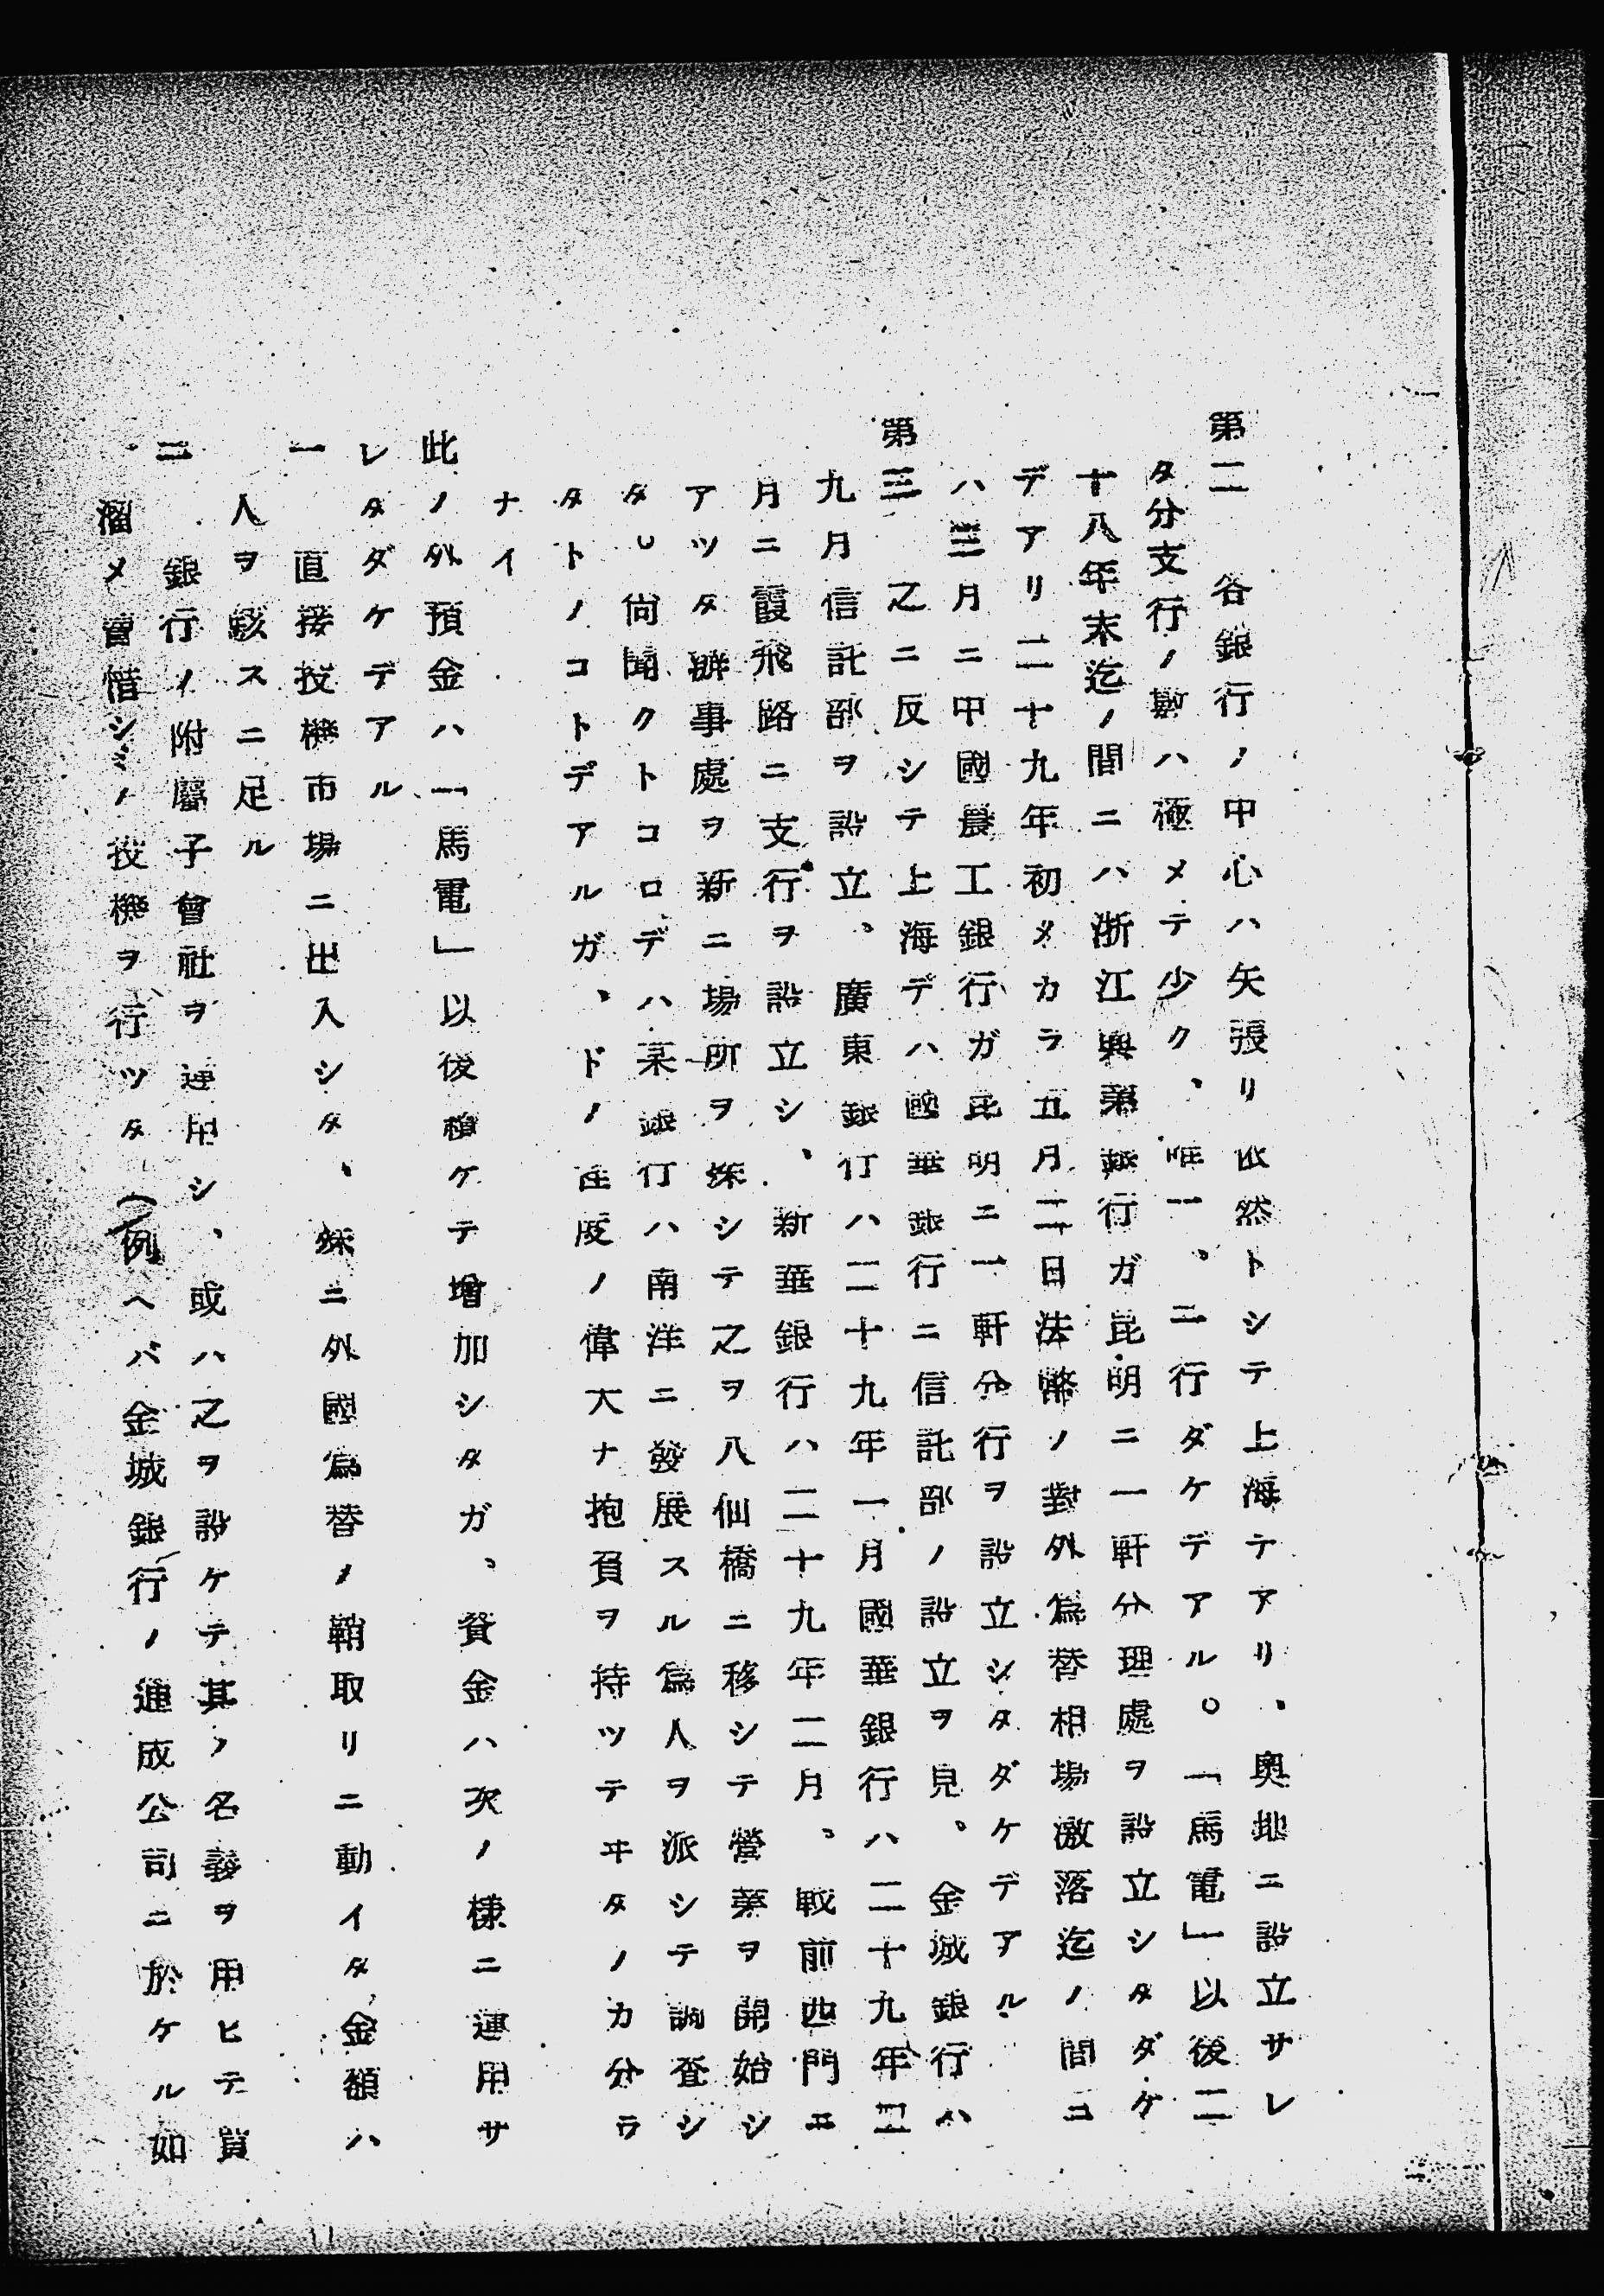 第二　各銀行ノ中心ハ矢張リ依然トシテ上海テアリ、奥地ニ設立サレ
タ分支行ノ數ハ極メテ少ク、唯一、二行ダケデアル。「馬電」以後二
十八年末迄ノ間ニハ浙江興業銀行ガ昆明ニ一軒分理處ヲ設立シタダケ
デアリ二十九年初メカラ五月二日法幣ノ對外爲替相場激落迄ノ間ニ
ハ三月ニ中國農工銀行ガ昆明ニ一軒分行ヲ設立シタダケデアル
第三　之ニ反シテ上海デハ國華銀行ニ信託部ノ設立ヲ見、金城銀行ハ
九月信託部ヲ設立、廣東銀行ハ二十九年一月國華銀行ハ二十九年三
月ニ霞飛路ニ支行ヲ設立シ、新華銀行ハ二十九年二月、戰前西門ニ
アツタ辦事處ヲ新ニ場所ヲ探シテ之ヲ八仙橋ニ移シテ營業ヲ開始シ
タ。尚聞クトコロデハ某銀行ハ南洋ニ發展スル爲人ヲ派シテ調査シ
タトノコトデアルガ、ドノ程度ノ偉大ナ抱負ヲ持ツテヰタノカ分ラ
ナイ
此ノ外預金ハ「馬電」以後續ケテ增加シタガ、資金ハ次ノ樣ニ運用サ
レタダケデアル
一　直接投機市場ニ出入シタ、殊ニ外國爲替ノ鞘取リニ動イタ金額ハ
人ヲ駭スニ足ル
二　銀行ノ附屬子會社ヲ運用シ、或ハ之ヲ設ケテ其ノ名義ヲ用ヒテ買
溜メ賣惜シミノ投機ヲ行ツタ（例ヘバ金城銀行ノ通成公司ニ於ケル如